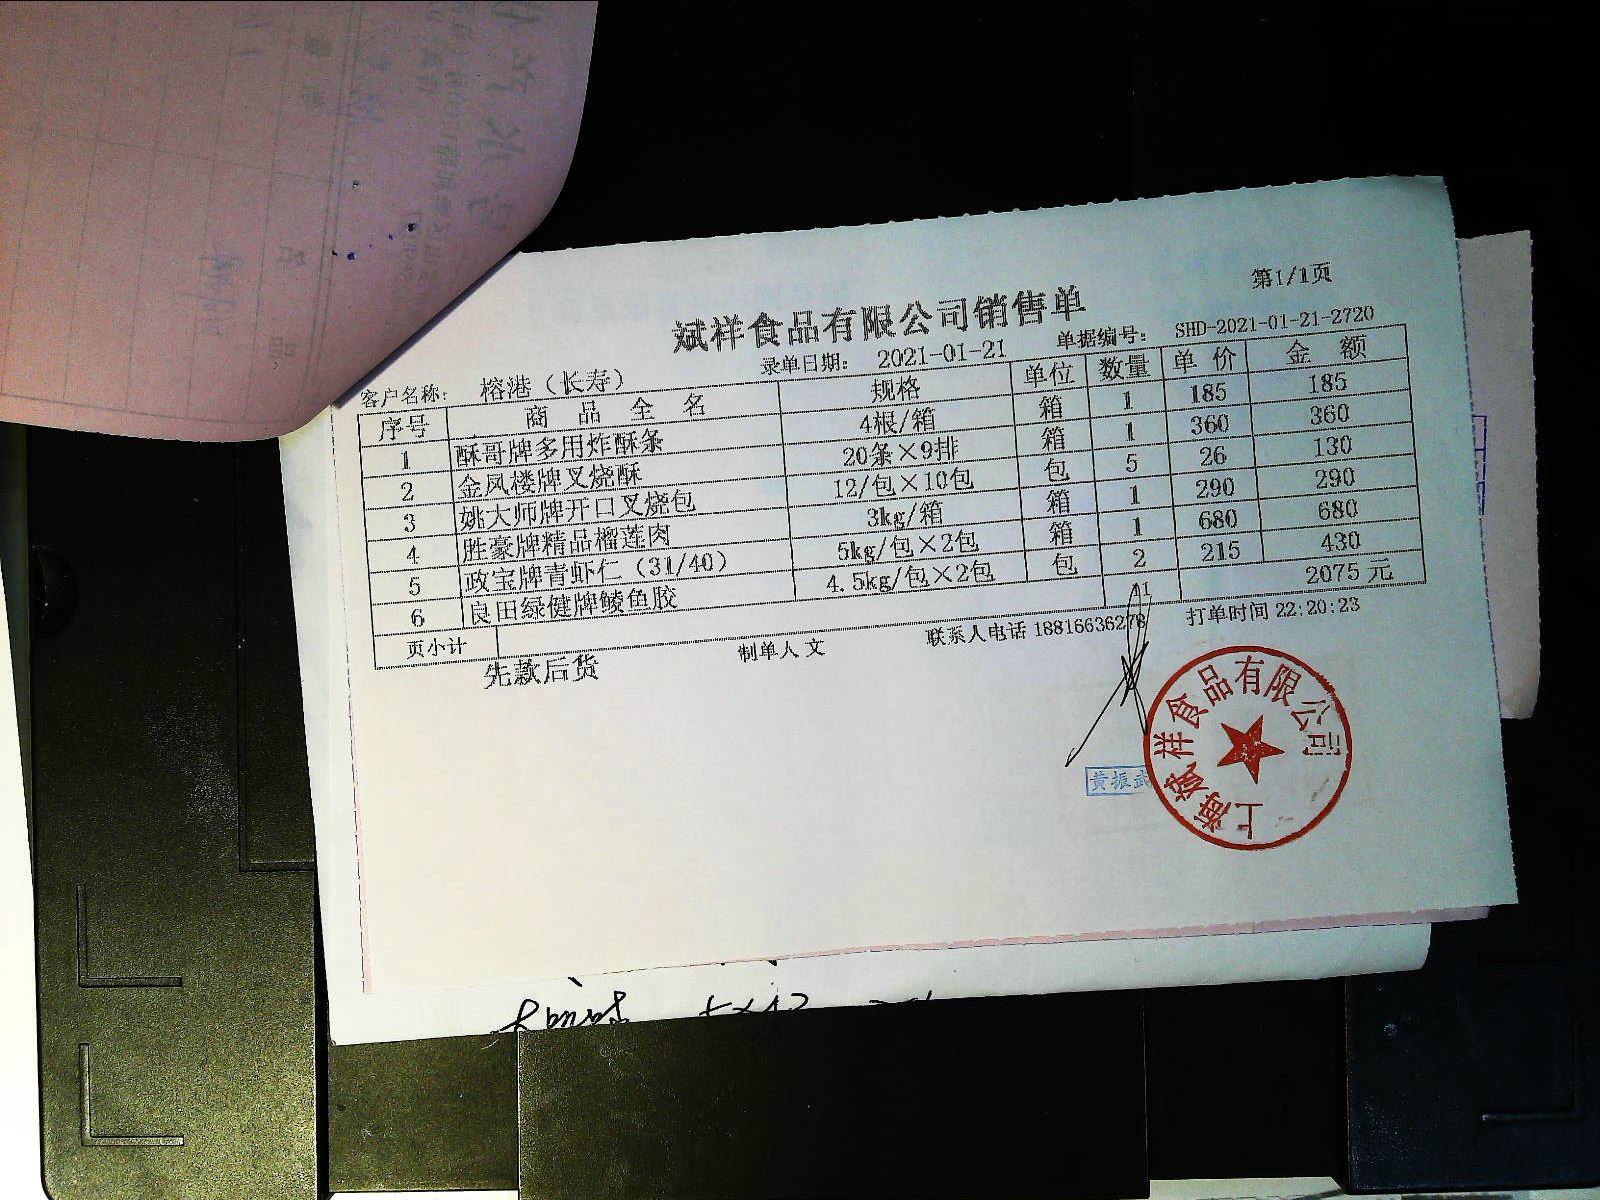 第1/1页
斌祥食品有限公司销售单
客户名称： 榕港（长寿） 录单日期： 2021-01-21 单据编号： SHD-2021-01-21-2720
序号 商品全名 规格 单位 数量 单价 金额
1 酥哥牌多用炸酥条 4根/箱 箱 1 185 185
2 金凤楼牌叉烧酥 20条×9排 箱 1 360 360
3 姚大师牌开口叉烧包 12/包×10包 包 5 26 130
4 胜豪牌精品榴莲肉 3kg/箱 箱 1 290 290
5 政宝牌青虾仁（31/40） 5kg/包×2包 箱 1 680 680
6 良田绿健牌鲮鱼胶 4.5kg/包×2包 包 2 215 430
页小计 11 2075元
先款后货 制单人 文 联系人电话 18816636278 打单时间 22:20:23
黄振武
上海斌祥食品有限公司